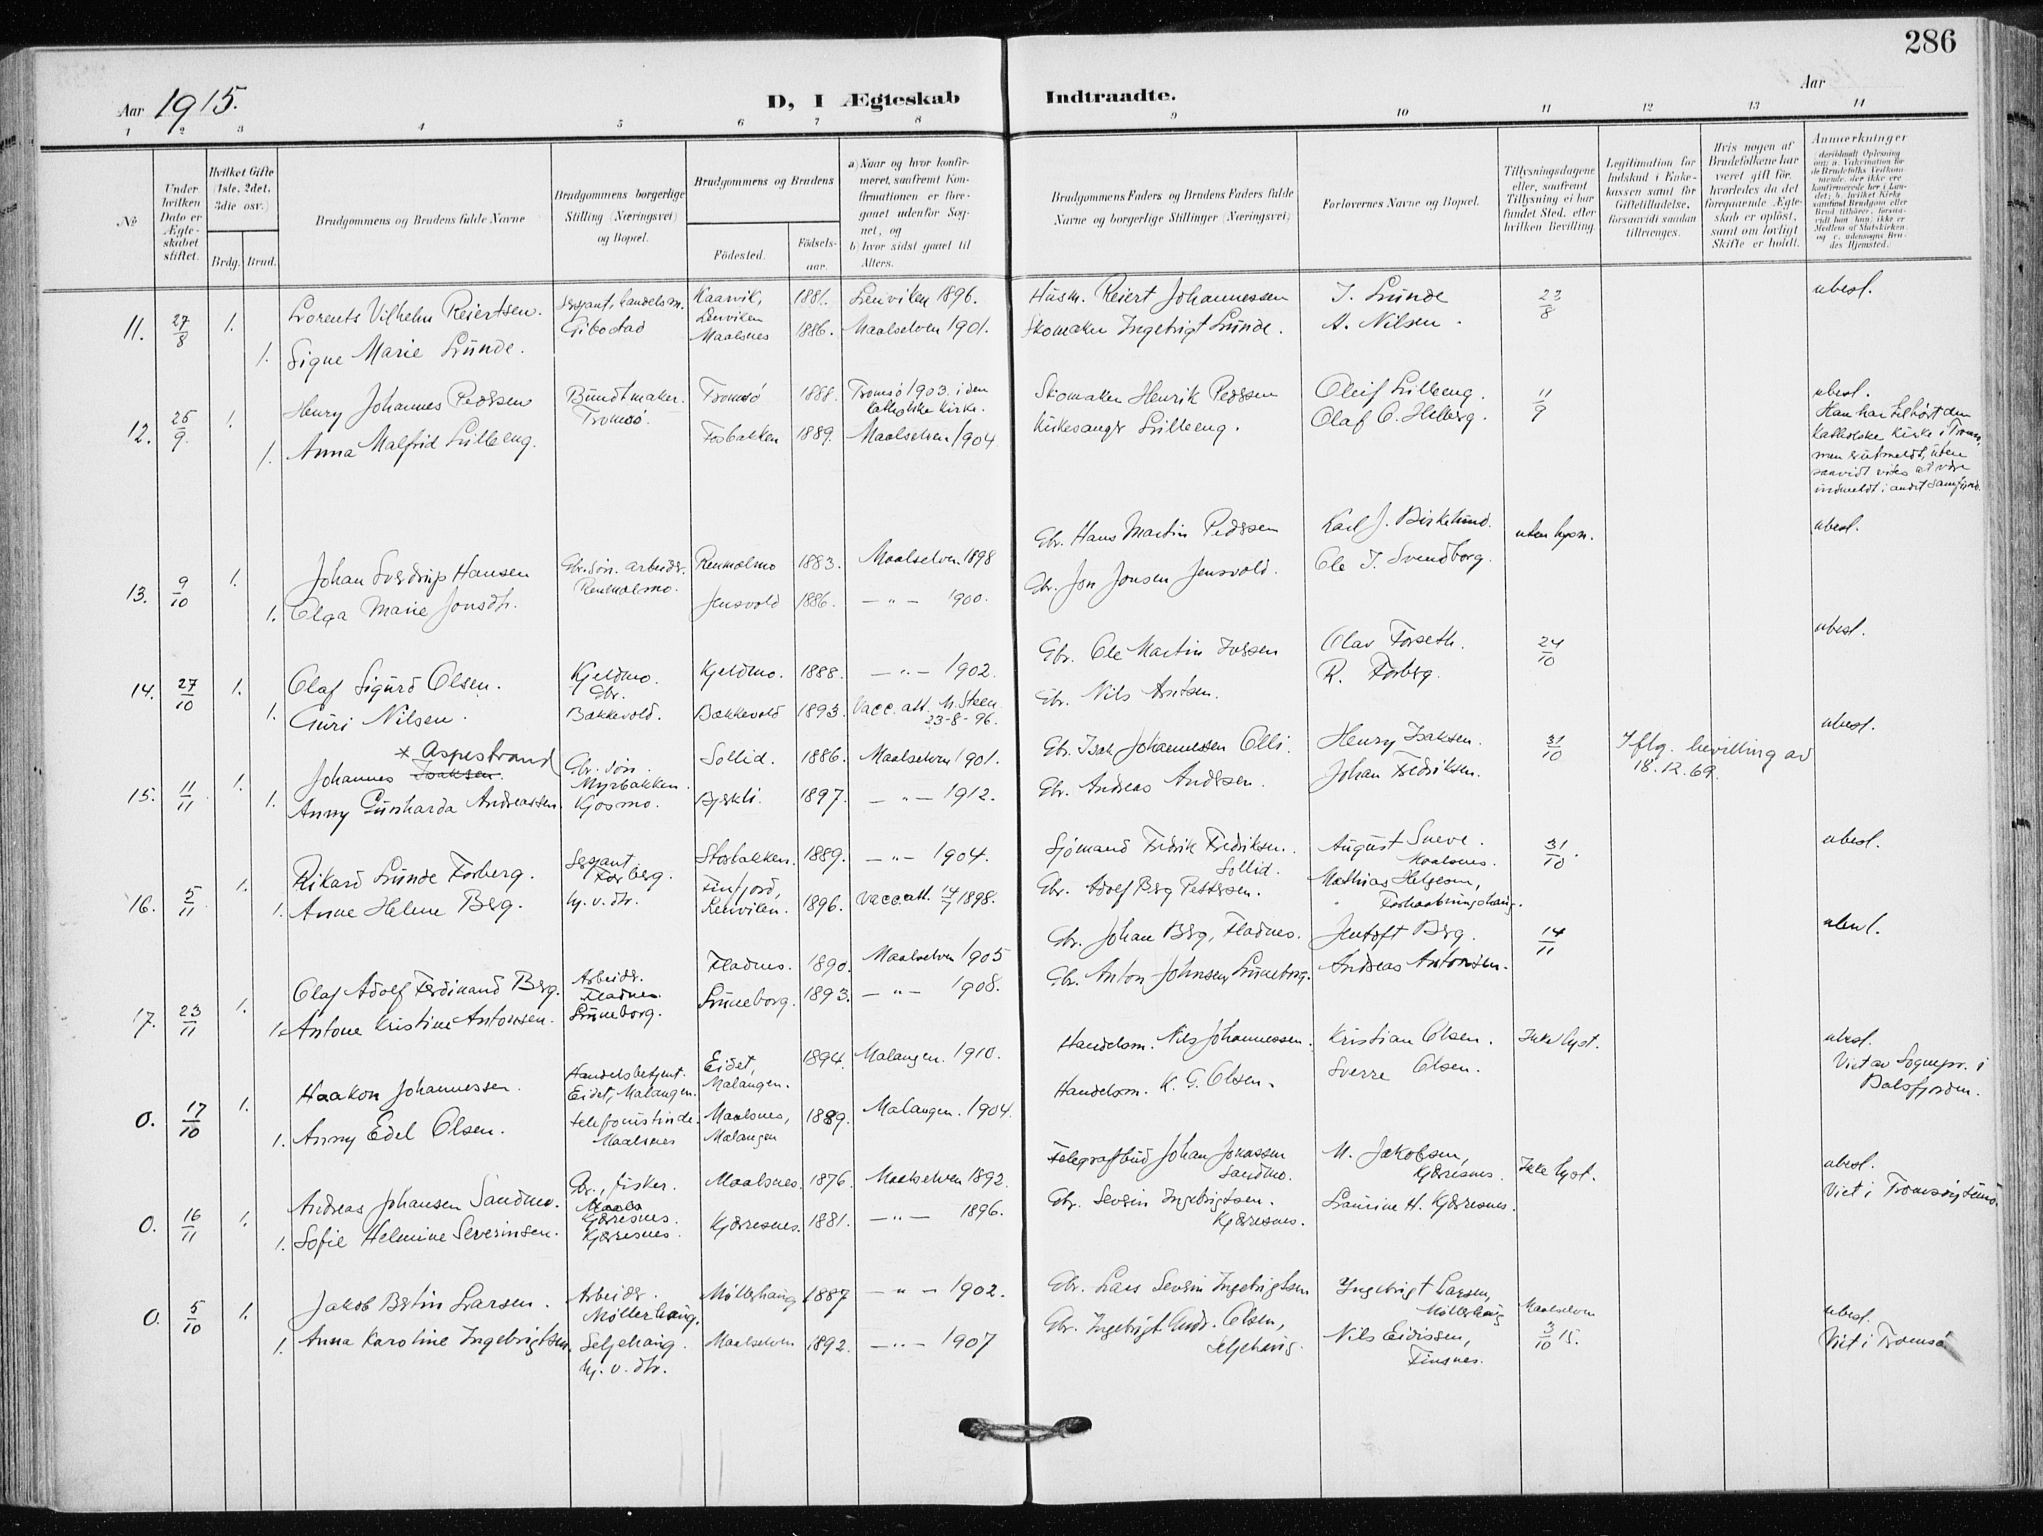 286
Aar 1915.
D, I Ægteskab Indtraadte.
Aar
1 2 3 4 5 6 7 8 9 10 11 12 13 14
№
Under hvilken Dato er Ægteskabet stiftet.
Hvilket Gifte (1ste, 2det, 3die osv.)
Brdg. Brud.
Brudgommens og Brudens fulde Navne
Brudgommens borgerlige Stilling (Næringsvei) og Bopæl.
Brudgommens og Brudens
Fødested.
Fødselsaar.
a) Naar og hvor konfirmeret, saafremt Konfirmationen er foregaaet udenfor Sognet, og
b) hvor sidst gaaet til Alters.
Brudgommens Faders og Brudens Faders fulde Navne og borgerlige Stillinger (Næringsvei)
Forlovernes Navne og Bopæl.
Tillysningsdagene eller, saafremt Tillysning ei har fundet Sted, efter hvilken Bevilling.
Legitimation for Indskud i Enkekassen samt for Giftetilladelse, forsaavidt saadan tiltrænges.
Hvis nogen af Brudefolkene har været gift før, hvorledes da det foregaaende Ægteskab er opløst, samt om lovligt Skifte er holdt.
Anmærkninger
11. 27/8 1. Lorents Vilhelm Reiertsen. Sersjant, handelsm. Gibostad Kaarvik, Lenviken 1881. Lenviken 1896. Husm. Reiert Johannessen J. Lunde 23/8 ubesl.
1. Signe Marie Lunde. Maalsnes 1886. Maalselven 1901. Skomaker Ingebrigt Lunde. A. Nilsen.
12. 25/9. 1. Henry Johannes Pedersen Bundtmaker. Tromsø. Tromsø 1888. Tromsø 1903. i den katholske Kirke. Skomaker Henrik Pedersen Oleif Lilleeng. 11/9 ubesl.
1. Anna Malfrid Lilleeng. Fosbakken 1889. Maalselven 1904 Kirkesanger Lilleeng. Olaf O. Helberg.
Han har tilhørt den
katholske kirke i Tromsø,
men er utmeldt, uten
saavidt vites at være
indmeldt i andet samfund.
13. 9/10 1. Johan Sverdrup Hansen Gbr. søn. arbeider. Renmælmo. Renmælmo 1883. Maalselven 1898 Gbr. Hans Martin Pedersen Karl J. Birkelund. uten lysn. ubesl.
1. Olga Marie Jonsdtr. Jensvold 1886. — " — 1900. Gbr. Jon Jonsen Jensvold. Ole J. Svendborg.
14. 27/10 1. Olaf Sigurd Olsen. Kjeldmo. Gbr. Kjeldmo. 1888. — " — 1902. Gbr. Ole Martin Iversen Olav Forseth. 24/10 ubesl.
1. Guri Nilsen. Bakkevold. Bakkevold 1893. Vacc. att. M. Steen 23-8-96. Gbr. Nils Arntsen. R. Forberg.
* Aspestrand
15. 11/11 1. Johannes Isaksen. Gbr. søn. Myrbakken. Sollid. 1886. Maalselven 1901. Gbr. Isak Johannessen Olli. Henry Isaksen. 31/10 Iflg. bevilling av 18.12.69. ubesl.
1. Anny Gunharda Andreassen. Kjosmo. Bjerkli. 1897. — " — 1912. Gbr. Andreas Andersen. Johan Fredriksen.
16. 5/11 1. Rikard Lunde Forberg. Sersjant Forberg. Storbakken. 1889. — " — 1904. Sjømand Fredrik Fredriksen. Sollid. August Sneve. Maalsnes. 31/10. ubesl.
1. Anne Helene Berg. hj. v. dtr. Finfjord, Lenviken. 1896. Vacc. att. 14/7 1898. Gbr. Adolf Berg Pettersen. Mathias Helgesen, Forhaabningshaug.
17. 23/11 1. Olaf Adolf Ferdinand Berg. Arbeider. Fladnes. Fladnes. 1890. Maalselven 1905 Gbr. Johan Berg, Fladnes. Jentoft Berg. 14/11 ubesl.
1. Antone Kristine Antonsen. Luneborg. Luneborg. 1893. — " — 1908. Gbr. Anton Johnsen, Luneborg. Andreas Antonsen.
0. 17/10 1. Haakon Johannessen. Handelsbetjent. Eidet, Malangen. Eidet, Malangen. 1894. Malangen. 1910. Handelsm. Nils Johannessen. Kristian Olsen. Ikke lyst. ubesl.
1. Anny Edel Olsen. Telefonistinde. Maalsnes Maalsnes, Malangen 1889. Malangen. 1904. Handelsm. K. G. Olsen. Sverre Olsen.
Viet av Sognepr. i
Balsfjorden.
0. 16/11 1. Andreas Johansen Sandmo. Gbr., fisker. Maals Kjærresnes. Maalsnes. 1876. Maalselven 1892. Telegrafbud Johan Jonassen Sandmo. M. Jakobsen, Kjærresnes. Ikke lyst. ubesl.
1. Sofie Helmine Severinsen. Kjærresnes. Kjærresnes. 1881. — " — 1896. Gbr. Severin Ingebrigtsen. Kjærresnes. Laurine H. Kjærresnes. Viet i Tromsøysund.
0. 5/10 1. Jakob Bertin Larsen. Arbeider. Møllerhaug. Møllerhaug 1887 — " — 1902. Gbr. Lars Severin Ingebrigtsen Ingebrigt Larsen, Møllerhaug Maalselven 3/10 15. ubesl.
1. Anna Karoline Ingebrigtsen. Seljehaug. hj. v. dtr. Maalselven 1892. — " — 1907 Gbr. Ingebrigt And. Olsen, Seljehaug. Nils Eivissen, Finsnes. Viet i Tromsø